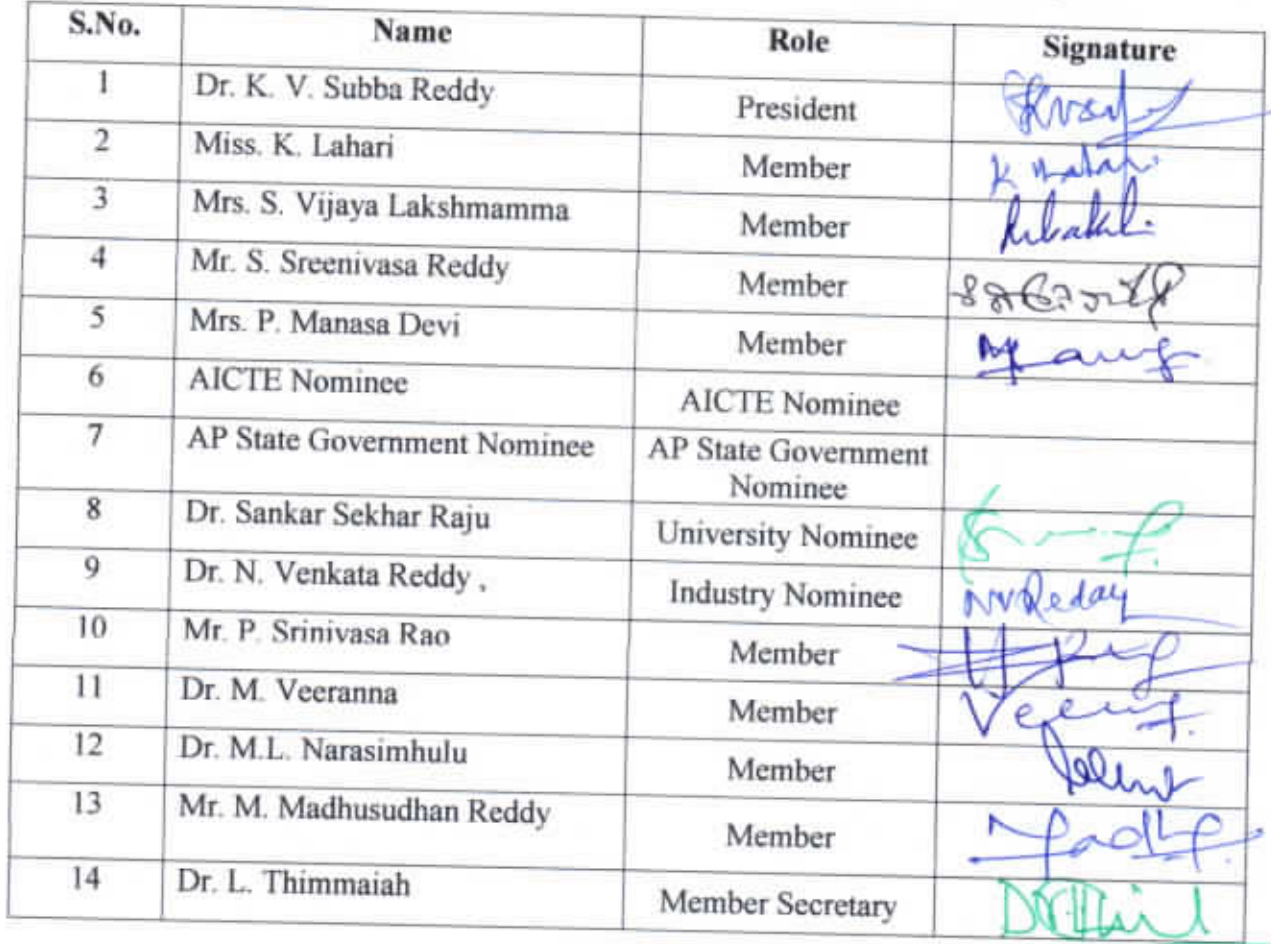 S.No. Name Role Signature
1 Dr. K. V. Subba Reddy President
2 Miss. K. Lahari Member
3 Mrs. S. Vijaya Lakshmamma Member
4 Mr. S. Sreenivasa Reddy Member
5 Mrs. P. Manasa Devi Member
6 AICTE Nominee AICTE Nominee
7 AP State Government Nominee AP State Government
Nominee
8 Dr. Sankar Sekhar Raju University Nominee
9 Dr. N. Venkata Reddy , Industry Nominee NVReddy
10 Mr. P. Srinivasa Rao Member
11 Dr. M. Veeranna Member
12 Dr. M.L. Narasimhulu Member
13 Mr. M. Madhusudhan Reddy Member
14 Dr. L. Thimmaiah Member Secretary